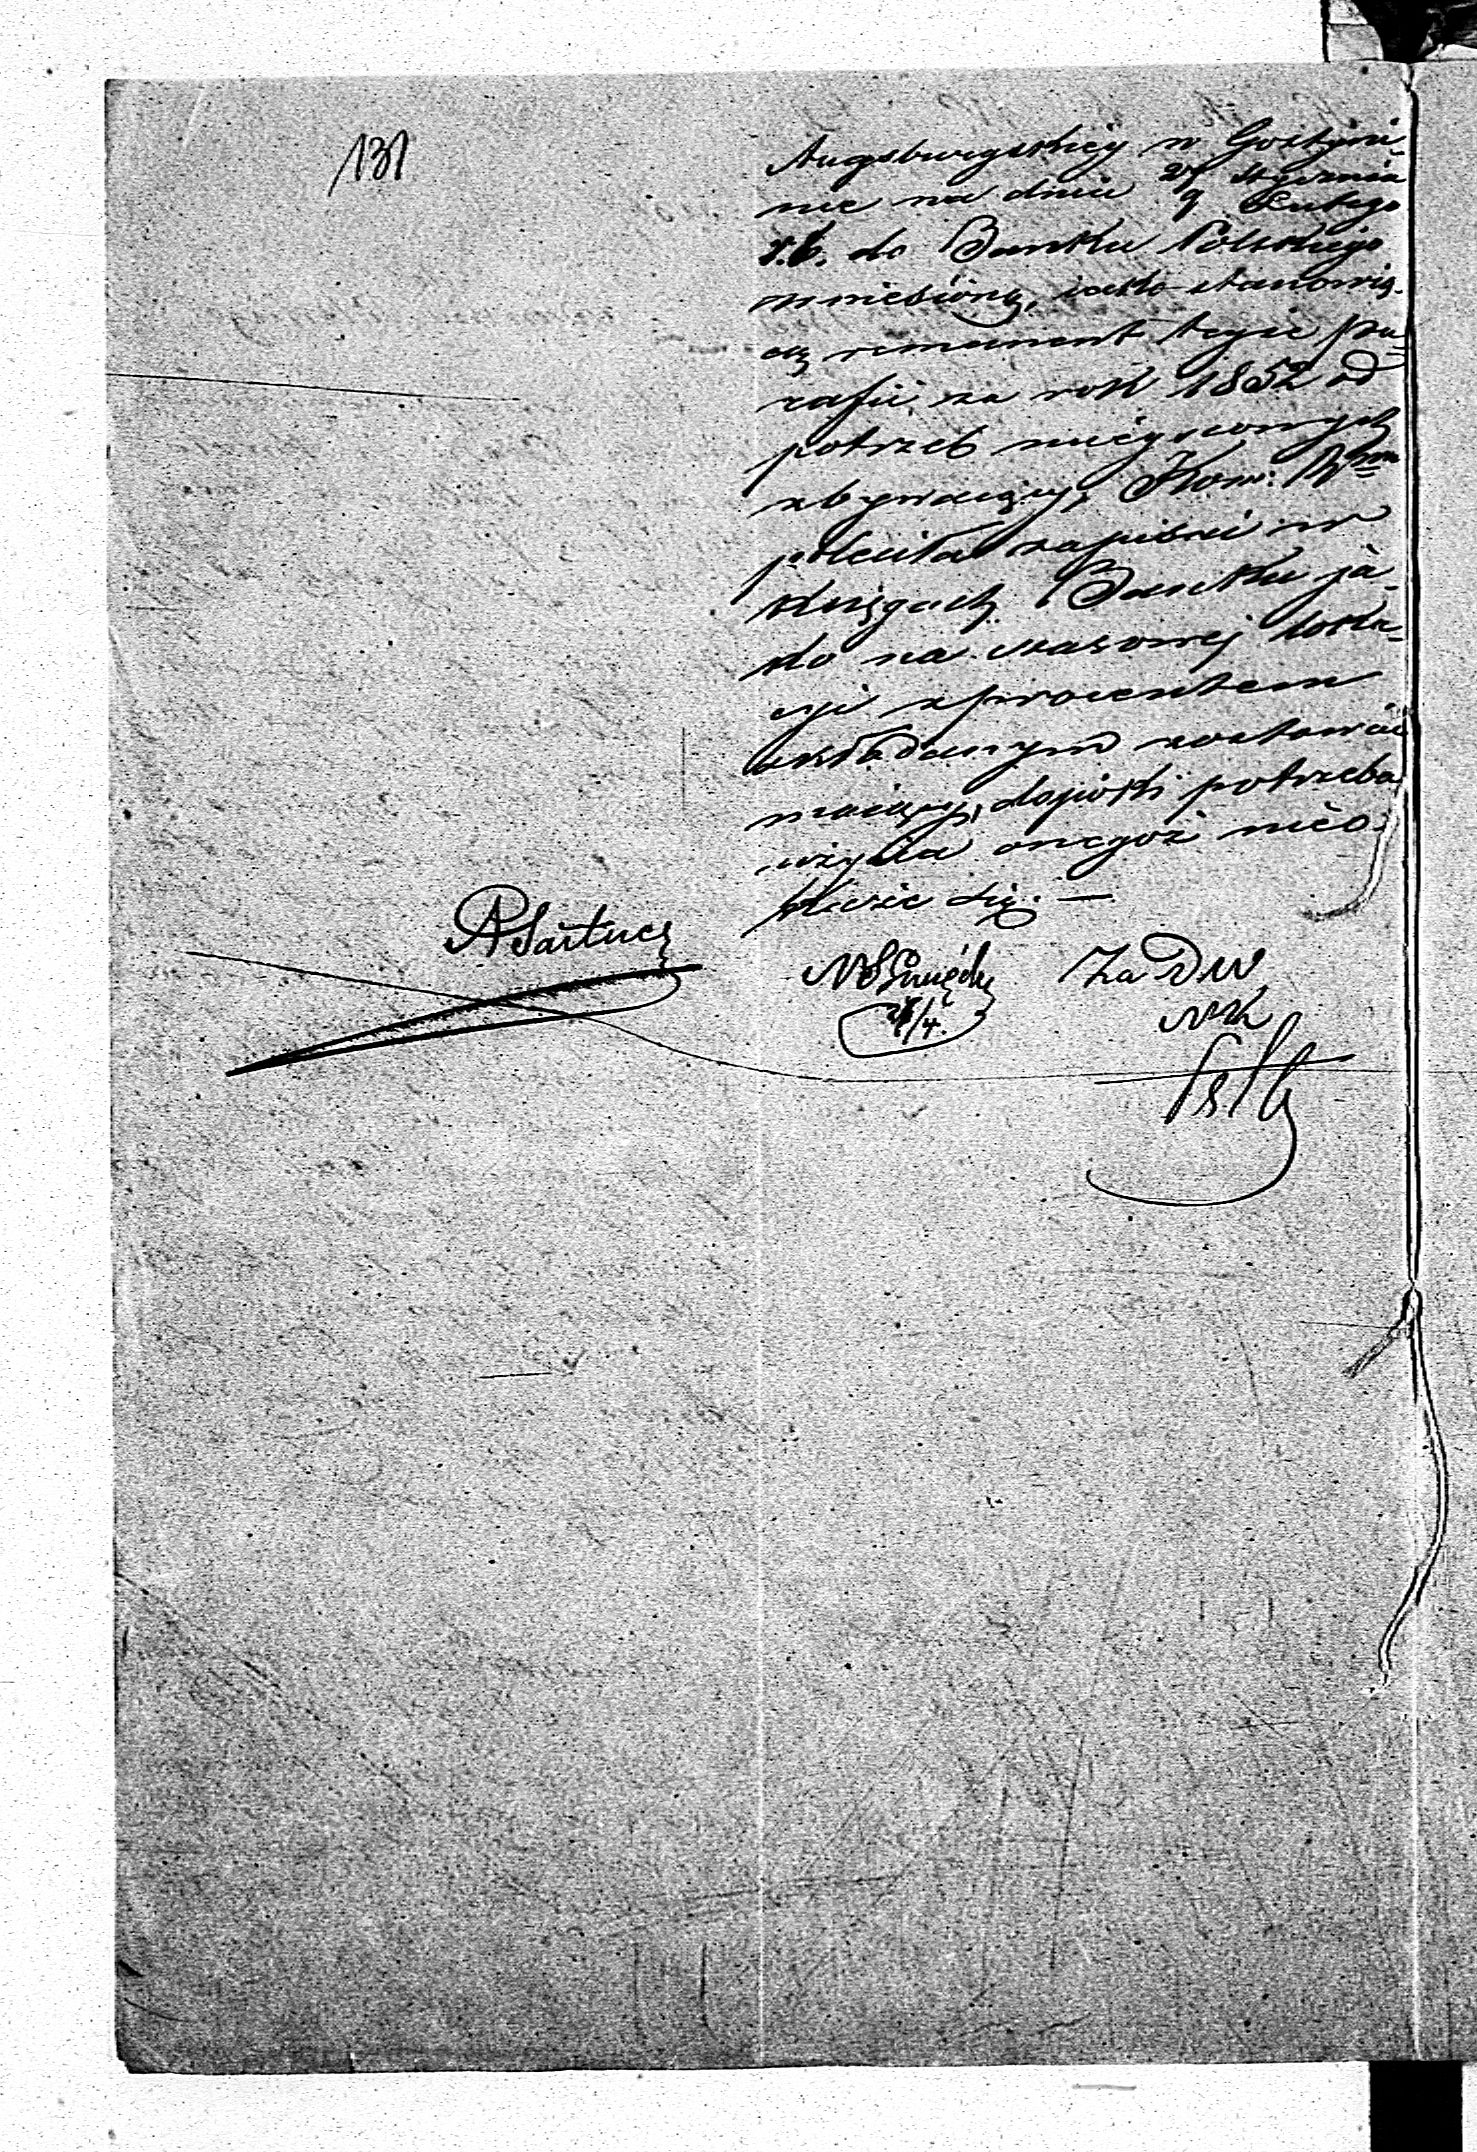 131
Augsburgskiey w Gostyni-
nie na dniu 28 Stycznia
9 Lutego
r. b. do Banku Polskiego
wniesioną, iako stanowią-
cą remanent tejże pa-
rafii za rok 1852 od
potrzeb miejscowych
zbywaiący, Kom: Rzą
poleciła zapisać w
księgach Banku ja-
ko na czasowej loka-
cyi z procentem
składanym zostawać
maiący, dopóki potrzeba
użycia onegoż nieo-
każe się. —
Za DW
NK